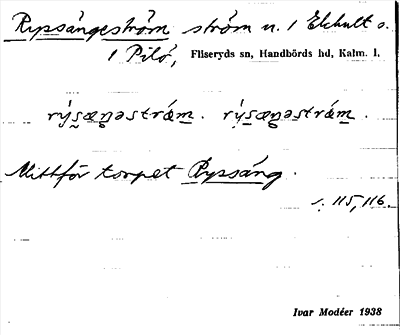 Rypsångeström ström n. 1 Ekhult o.
1 Pilö, Fliseryds sn, Handbörds hd, Kalm. l.
rýsæŋəstrám. rýsæŋəstrám.
Mittför torpet Rypsång.
s. 115, 116.
Ivar Modéer 1938